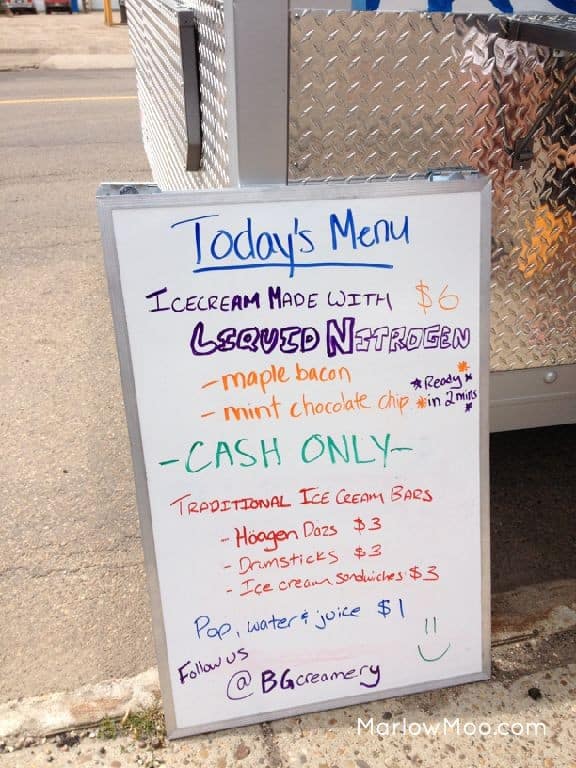 Today's Menu
ICECREAM MADE WITH $6
LIQUID NITROGEN
- maple bacon
- mint chocolate chip
*Ready*
*in 2 mins*
- CASH ONLY -
TRADITIONAL ICE CREAM BARS
- Häagen Dazs $3
- Drumsticks $3
- Ice cream sandwiches $3
Pop, water & juice $1
Follow us
@BGcreamery
MarlowMoo.com